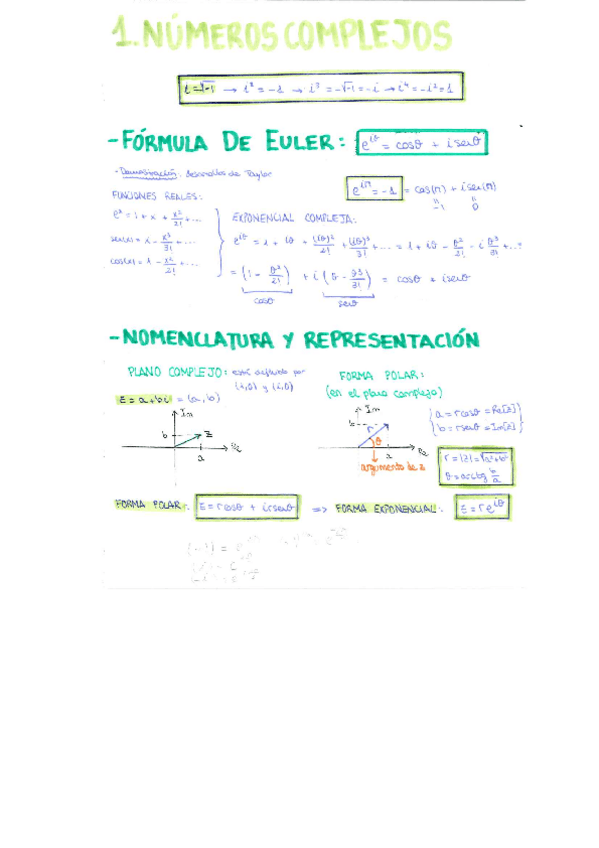 1. NÚMEROS COMPLEJOS
i=√-1 → i² = -1 → i³ = -√-1 = -i → i⁴ = -i² = 1
- FÓRMULA DE EULER: e^{iθ} = cosθ + i senθ
- Demostración: desarrollos de Taylor
e^{iπ} = -1 = cos(π) + i sen(π)
-1 0
FUNCIONES REALES:
e^x = 1 + x + x²/2! + ...
sen(x) = x - x³/3! + ...
cos(x) = 1 - x²/2! + ...
EXPONENCIAL COMPLEJA:
e^{iθ} = 1 + iθ + (iθ)²/2! + (iθ)³/3! + ... = 1 + iθ - θ²/2! - i θ³/3! + ...
= (1 - θ²/2!) + i (θ - θ³/3!) = cosθ + i senθ
cosθ senθ
- NOMENCLATURA Y REPRESENTACIÓN
PLANO COMPLEJO: está definido por
z = a + bi = (a, b)
Im
b z
a Re
FORMA POLAR:
(en el plano complejo)
Im
b r θ
a Re
argumento de z
a = r cosθ = Re[z]
b = r senθ = Im[z]
r = |z| = √a²+b²
θ = arctg b/a
FORMA POLAR: z = r cosθ + i r senθ => FORMA EXPONENCIAL: z = r e^{iθ}